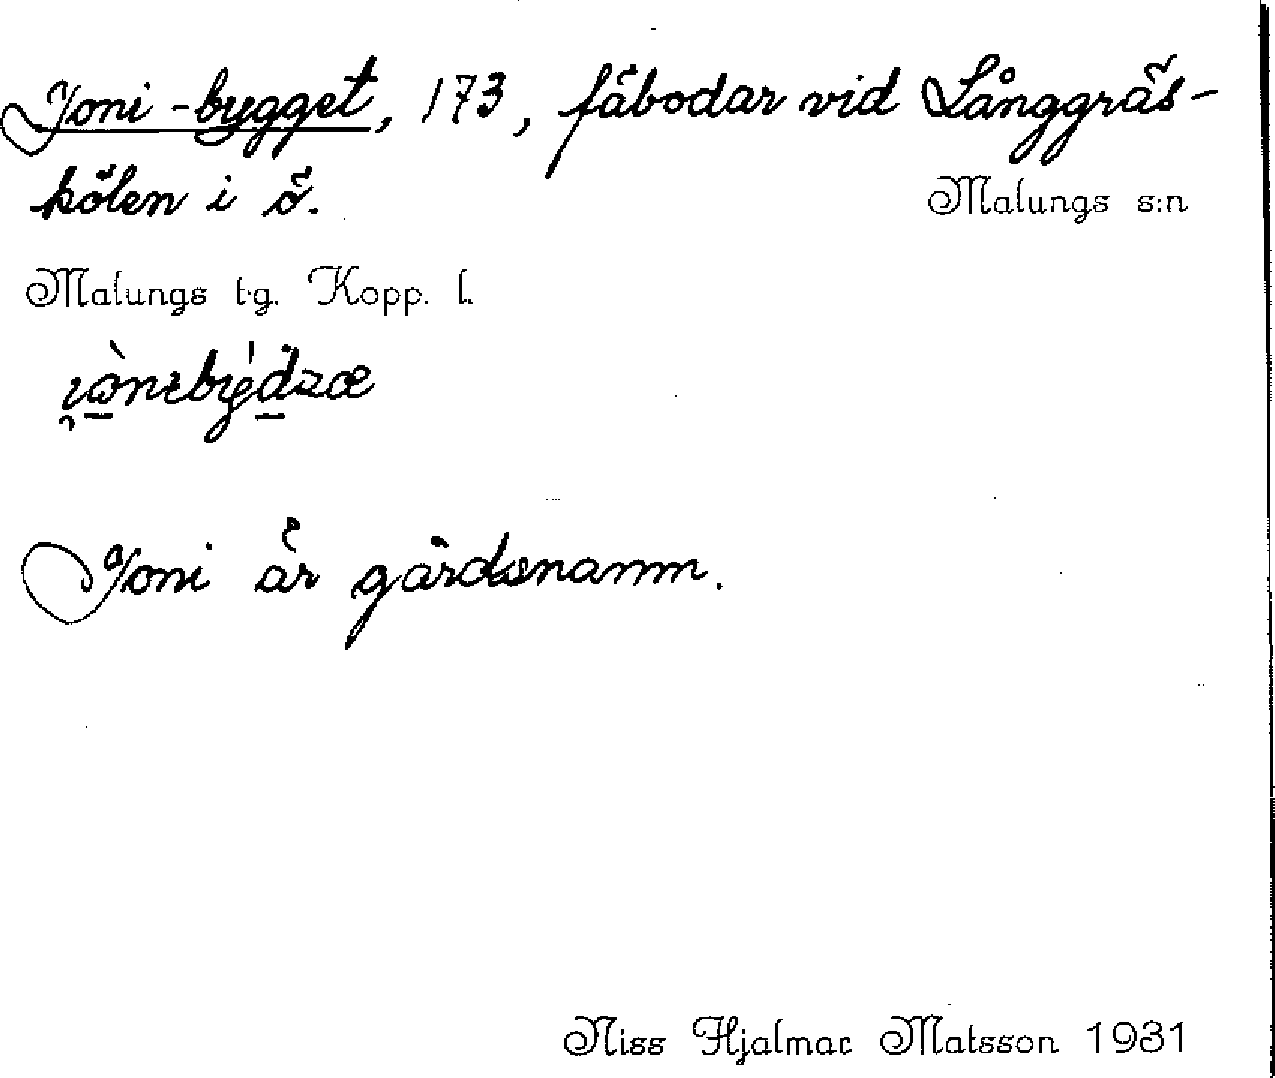 Joni-bygget, 173, fäbodar vid Långgräs-
kölen i ö.
Malungs s:n
Malungs t.g. Kopp. l.
Joni är gårdsnamn.
Niss Hjalmar Matsson 1931